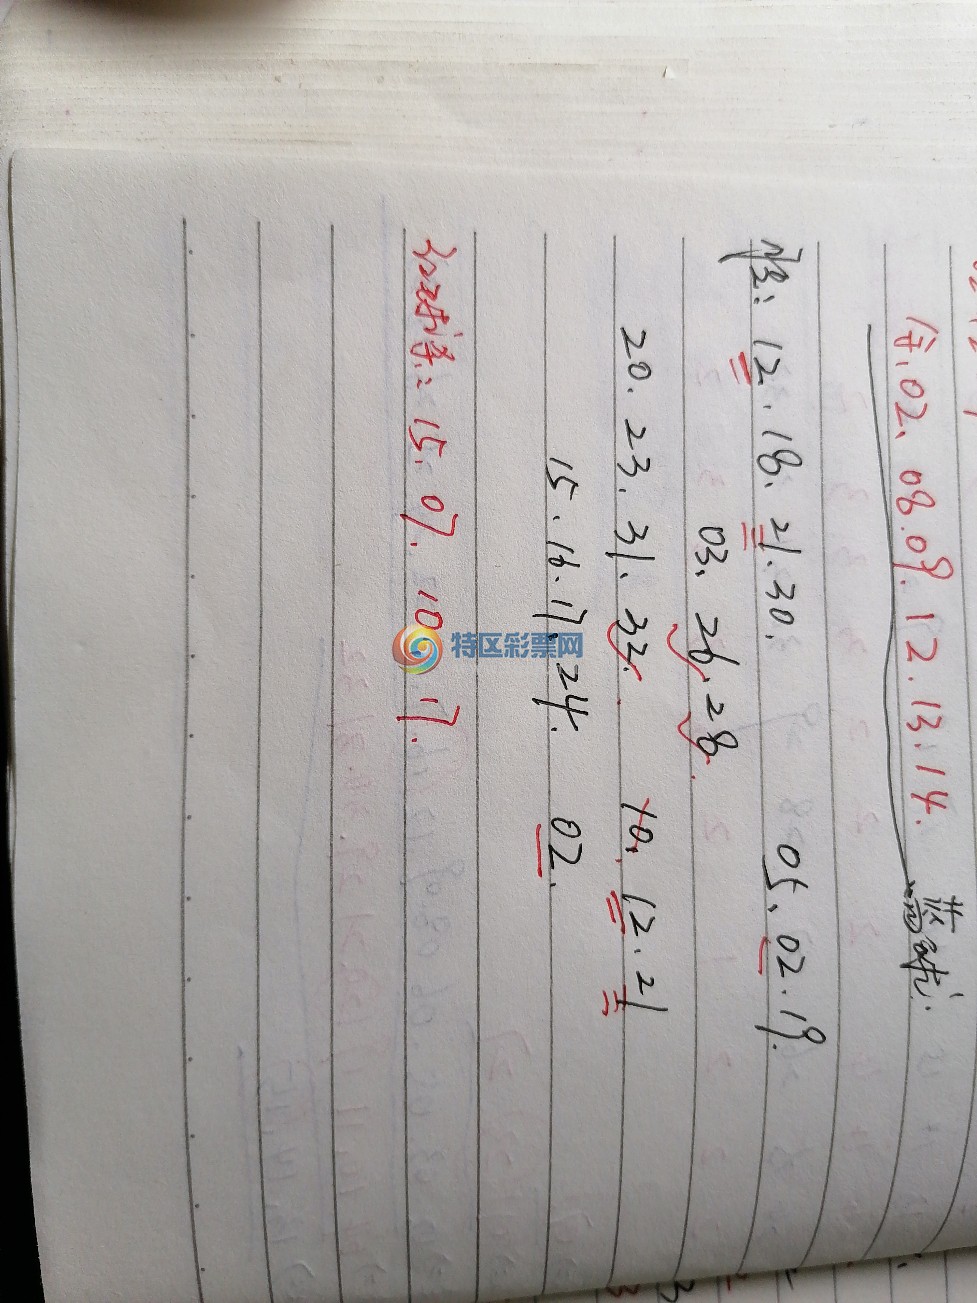 全.02、08.09.12.13.14.
蓝球:
准:12.18.21.30. 05.02.19.
03.26.28.
20.23.31.32. 10.12.21
15.16.17.24. 02.
15.07.10.17.
特区彩票网